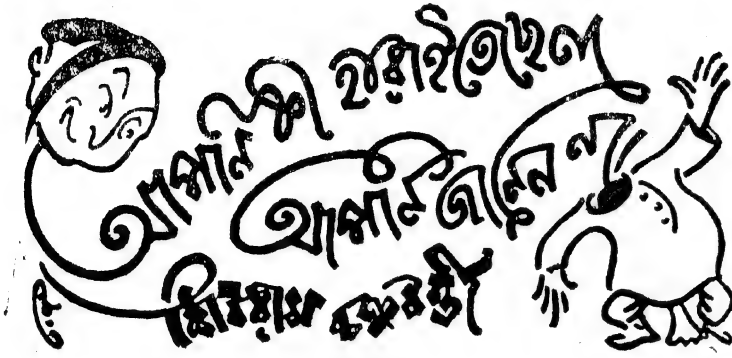 আপনি কী হারাইতেছেন
আপনি জানেন না
শিবরাম চক্রবর্তী